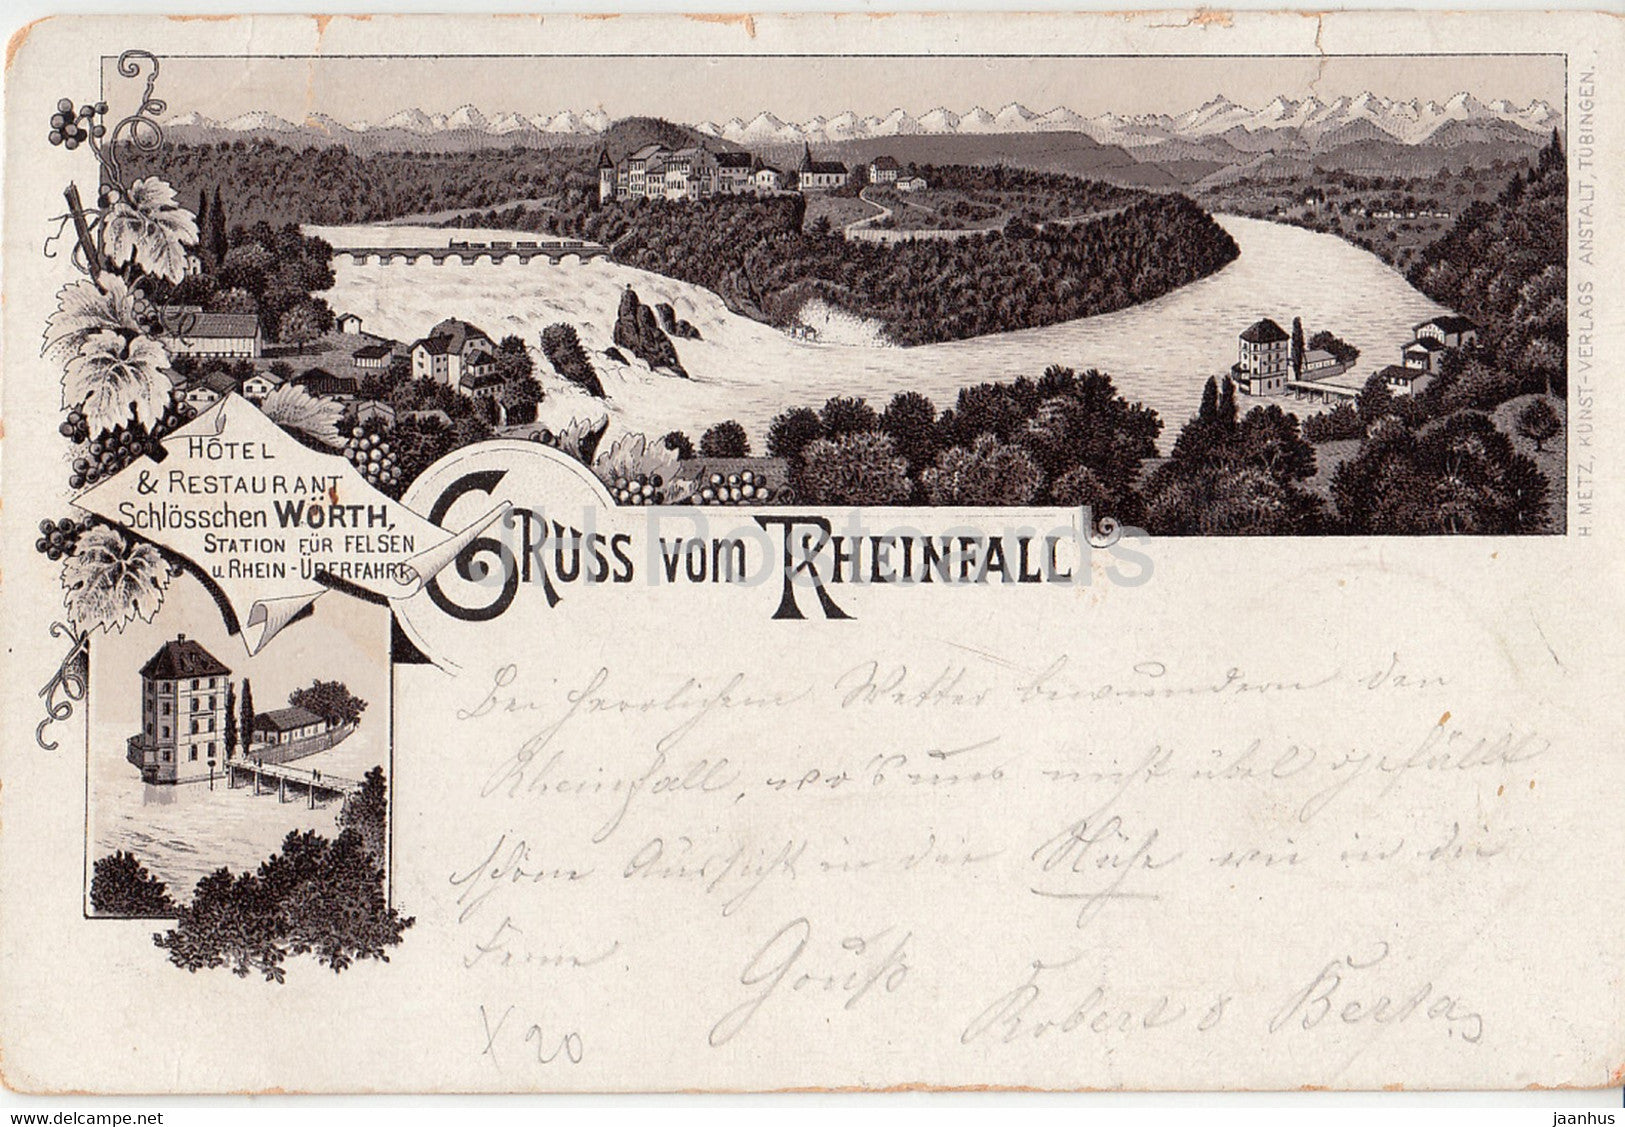 HÔTEL
& RESTAURANT
Schlösschen WÖRTH,
STATION FÜR FELSEN
u. RHEIN-ÜBERFAHRT
GRUSS vom RHEINFALL
H METZ, KUNST-VERLAGS ANSTALT, TÜBINGEN.
JH Postcards
Bei herrlichem Wetter bewundern den
Rheinfall, wo's uns nicht übel gefällt
schöne Aussicht in der Nähe wie in die
Ferne. Gruß
Robert & Berta
X 20
www.delcampe.net
jaanhus